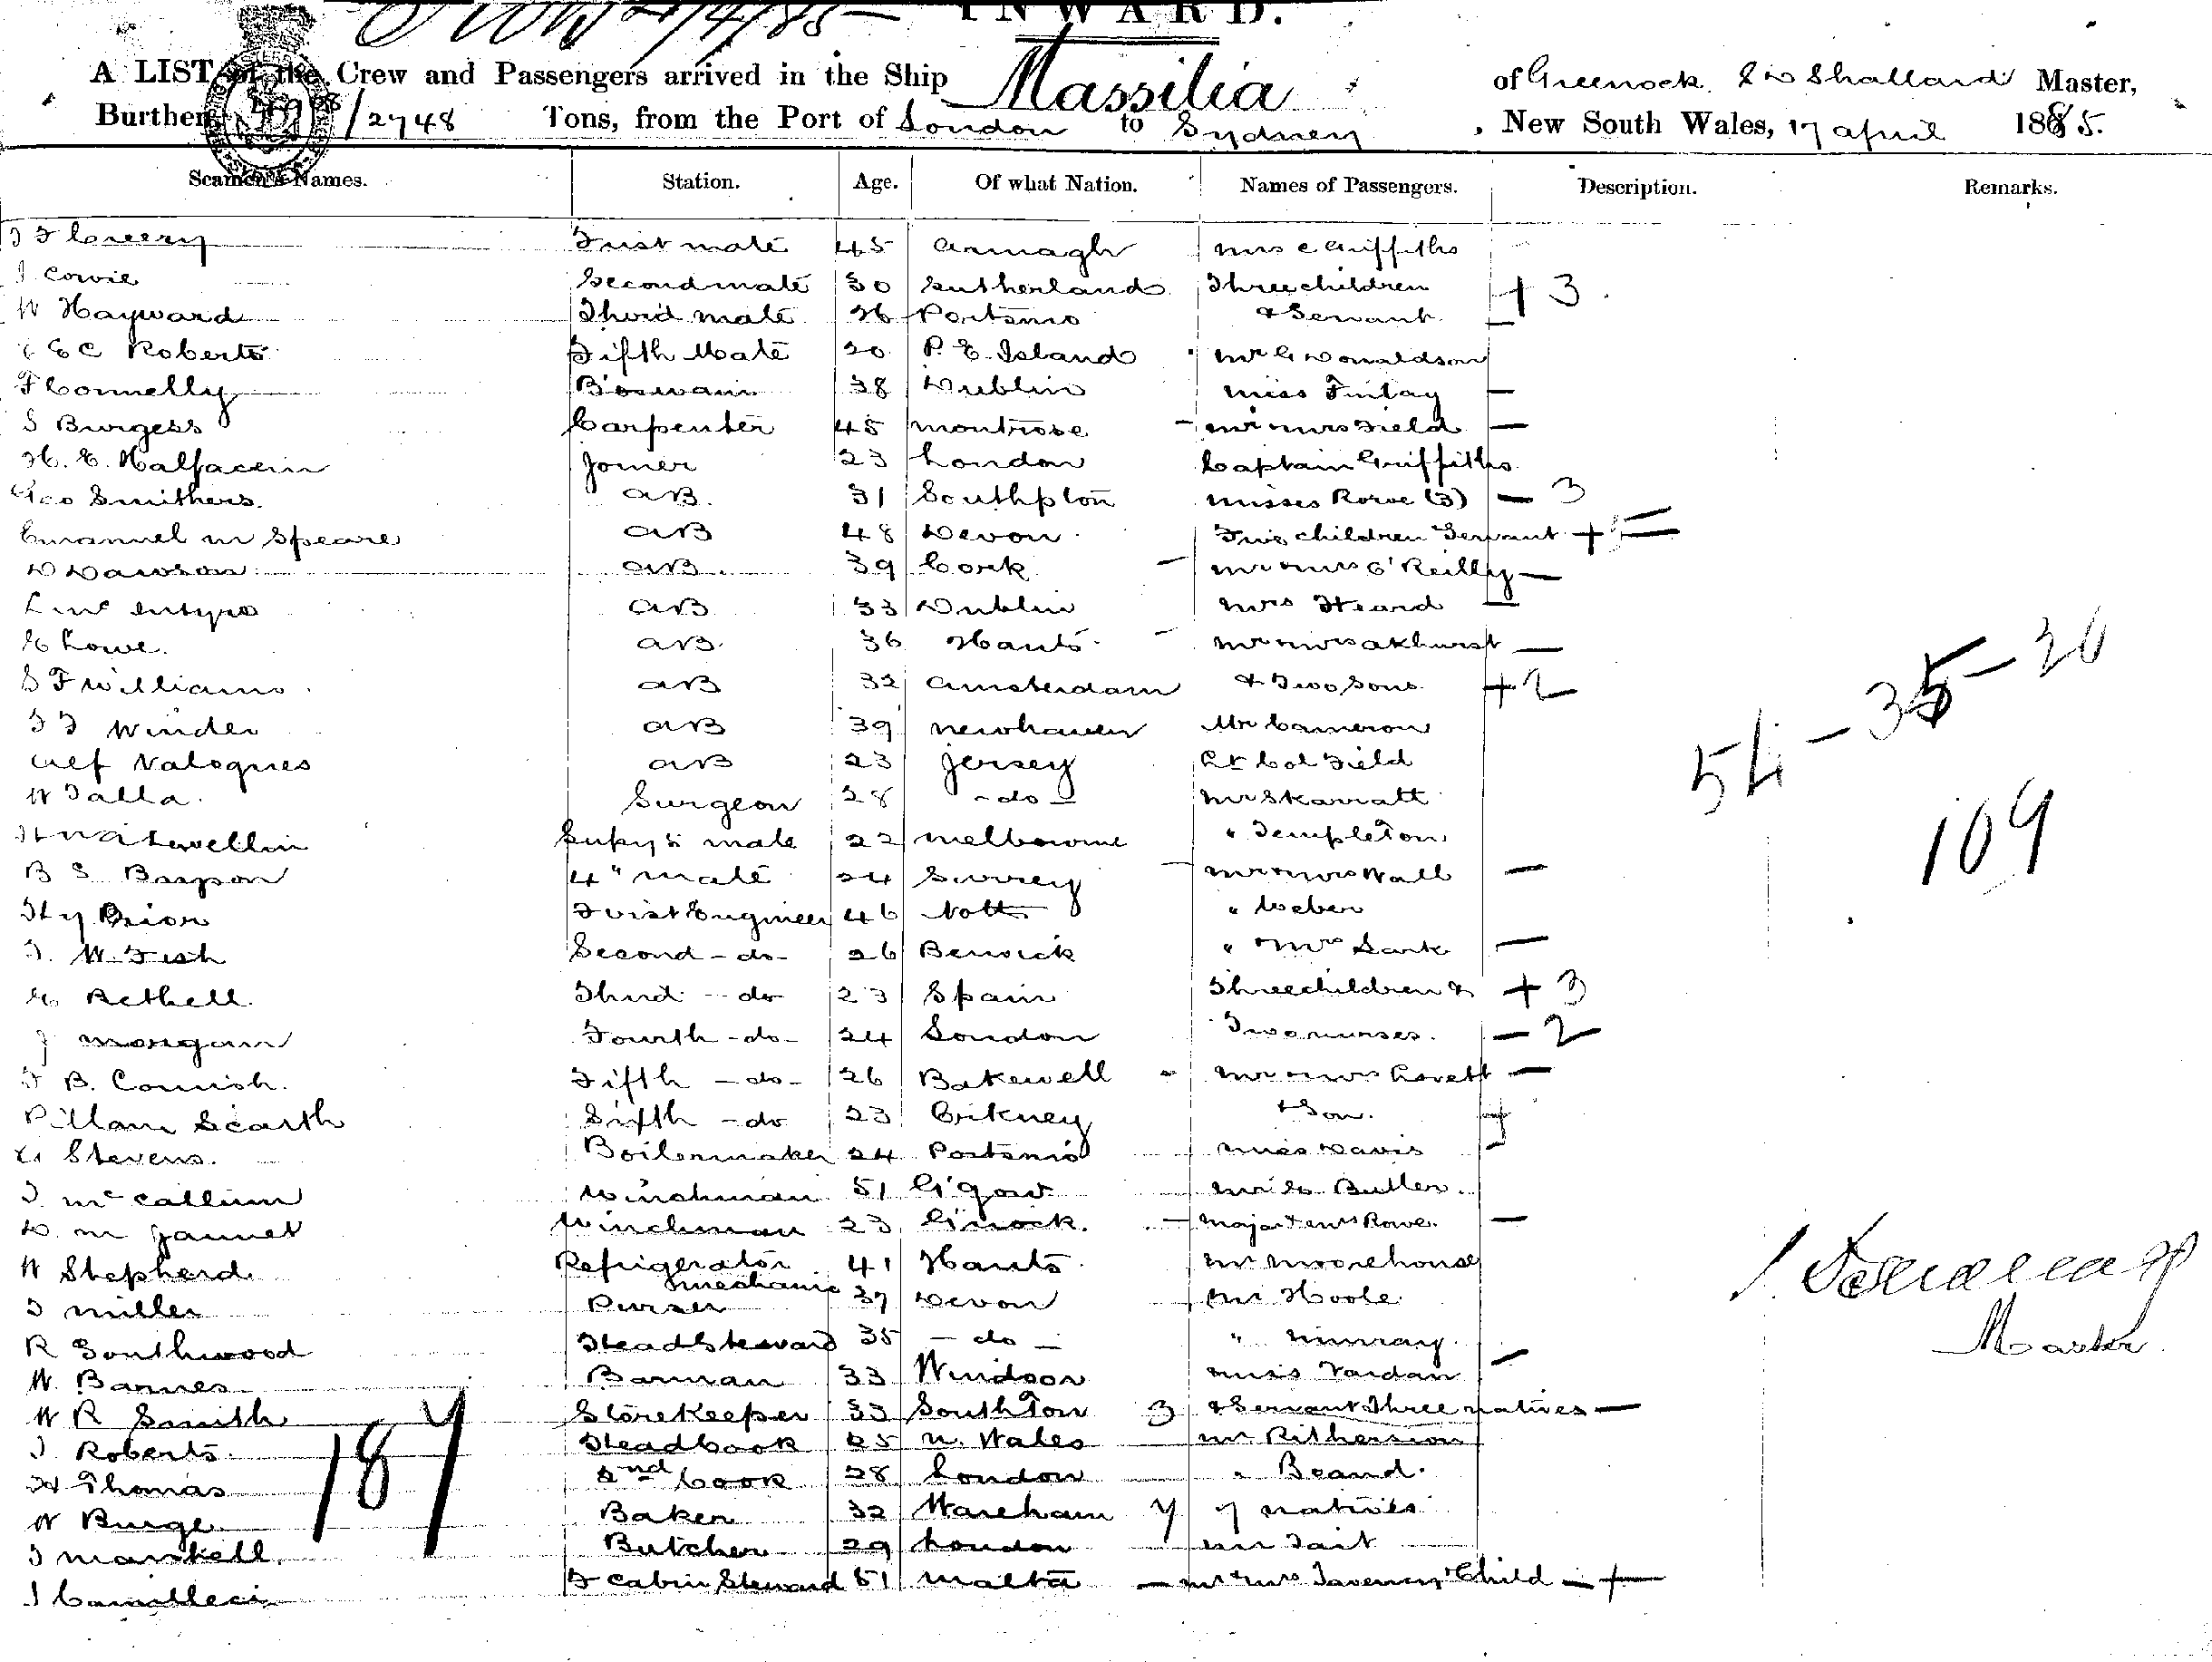 INWARD.
A LIST of the Crew and Passengers arrived in the Ship Massilia of Greenock. Shallard Master,
Burthen /2748 Tons, from the Port of London to Sydney, New South Wales, 17 april 1885.
Seamen's Names. Station. Age. Of what Nation. Names of Passengers. Description. Remarks.
First mate 45 Armagh Mrs C Griffiths
J Cowie Second mate 30 Sutherland Three children + 3
W Hayward Third mate 26 Portsmo & Servant
E C Roberts Fifth Mate 20 P. E. Island Mr G Donaldson
F Connelly Boswain 38 Dublin Miss Finlay —
S Burgess Carpenter 45 Montrose — Mr Mrs Field —
H. E. Halfacein Joiner 23 London Captain Griffiths
Geo Smithers. AB. 31 Southpton Misses Rowe (3) — 3
Emanuel M Speare AB 48 Devon Two children Servant +
D Dawson AB. 39 Cork — Mr Mrs O'Reilly —
AB 33 Dublin Mrs Heard —
E Lowe. AB. 36 Hants — Mr Mrs Akhurst —
S F Williams. AB 32 Amsterdam & Two Sons + 2
Winder AB 39 Newhaven Mr Cameron
Alf Valognes AB 23 Jersey Lt Col Field
W Talla. Surgeon 28 - do - Mr Skarratt
mate 22 Melbourne " Templeton
B S 4" mate 24 Surrey — Mr Mrs Wall —
Hy Prior First Engineer 46 Notts " Weber
W. Fish Second - do - 26 Berwick " Mrs —
Bethell. Third - do 23 Spain Three children & + 3
J Morgan Fourth - do - 24 London Two nurses. — 2
B. Cornish. Fifth - do - 26 Bakewell Mr Mrs Lovett —
Scarth Sixth - do 23 Orkney & Son. +
Stevens. Boilermaker 24 Portsmo Miss Davis —
McCallum Winchman 51 G'gow Butler.
Winchman 23 G'nock. — Major & Mrs Rowe. —
W Shepherd Refrigerator mechanic 41 Hants Mr Moorehouse
Miller Purser 37 Devon Mr Hoole
R Southwood Head Steward 35 - do - " Murray
W. Barnes Barman 33 Windsor Miss Vardan —
W R Smith Storekeeper 33 SouthTon 3 & Servant Three natives —
Roberts. Head Cook N. Wales Mr
Thomas 2nd Cook 28 London " Beand.
W Burge Baker 32 Wareham 7 7 natives
Butcher 29 London Mr Tait
J Camilleri F Cabin Steward 51 Malta — Mr & Mrs Child — +
54 — 35 — 20
109
187
Master